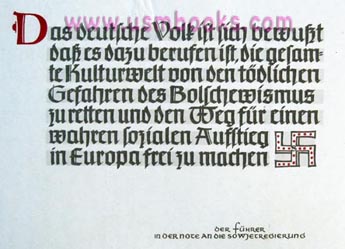 www.usmbooks.com
Das deutsche Volk ist sich bewußt
daß es dazu berufen ist, die gesam-
te Kulturwelt von den tödlichen
Gefahren des Bolschewismus
zu retten und den Weg für einen
wahren sozialen Aufstieg
in Europa frei zu machen
DER FÜHRER
IN DER NOTE AN DIE SOWJETREGIERUNG